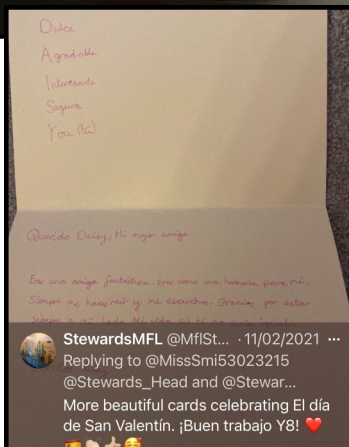 Dulce
Agradable
Interesante
Segura
You (tú)
Querido Daisy, Mi mejor amiga
Eres una amiga fantástica. Eres como una hermana para mí.
Siempre me haces reír y me escuchas. Gracias por estar
siempre a mi lado. Mi vida sin ti no sería igual.
StewardsMFL @MflSt... · 11/02/2021 ···
Replying to @MissSmi53023215
@Stewards_Head and @Stewar...
More beautiful cards celebrating El día
de San Valentín. ¡Buen trabajo Y8! ❤️